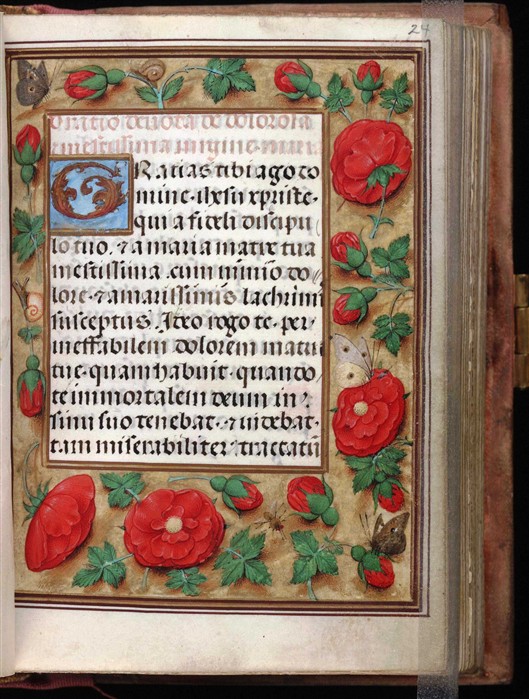 24
Oratio deuota de dolorosa
⁊ mestissima uirgine maria
GRatias tibi ago do
mine ·ihesu xpriste·
quia fideli discipu
lo tuo ·⁊ a maria matre tua
mestissima cum nimio do
lore ·⁊ amarissimis lachrimis
susceptus Ideo rogo te· per
ineffabilem dolorem matris
tue· quam habuit· quando
te immortalem deum in
sinu suo tenebat· ⁊ uidebat·
tam miserabiliter tractatū